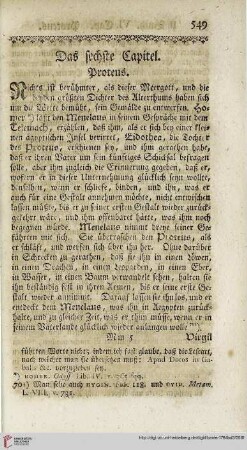 549
Das sechste Capitel.
Proteus.
Nichts ist berühmter, als dieser Meergott, und die
beyden größten Dichter des Alterthums haben sich
um die Wette bemüht, sein Gemälde zu entwerfen. Ho-
mer läßt den Menelaus in seinem Gespräche mit dem
Telemach, erzählen, daß ihm, als er sich bey einer klei-
nen egyptischen Insel befand, Eidothea, die Tochter
des Proteus, erschienen sey, und ihm gerathen habe,
daß er ihren Vater um sein künftiges Schicksal befragen
solle, aber ihm zugleich die Erinnerung gegeben, daß er,
wofern er in dieser Unternehmung glücklich seyn wolle,
denselben, wenn er schliefe, binden, und ihn, was er
auch für eine Gestalt annehmen möchte, nicht entwischen
lassen müßte, bis er zu seiner ersten Gestalt wieder zurück
gekehrt wäre, und ihm offenbart hätte, was ihm noch
begegnen würde. Menelaus nimmt dreye seiner Ge-
fährten mit sich. Sie überraschen den Proteus, als
er schläft, und werfen sich über ihn her. Ohne darüber
in Schrecken zu gerathen, daß sie ihn in einen Löwen,
in einen Drachen, in einen in einen Eber,
in Wasser, in einen Baum verwandeln sehen, halten sie
ihn beständig fest in ihren Armen, bis er seine erste Gestalt
wieder annimmt. Darauf lassen sie ihn los, und er
entdeckt dem Menelaus, was ihn in Aegypten zurück
halte, und zu gleicher Zeit, was er thun müßte, wenn er in
seinem Vaterlande glücklich wieder anlangen wolle
Mm 5 Virgil
führten Worte nicht; indem ich fast glaube, daß die Lesart,
nach welcher man sie übersetzen muß: Apud
vorzugeben sey.
HOMER. Lib. IV. v.
70) Man sehe auch HYGIN. 118. und OVID. Metam.
L. VIII. v. 731.